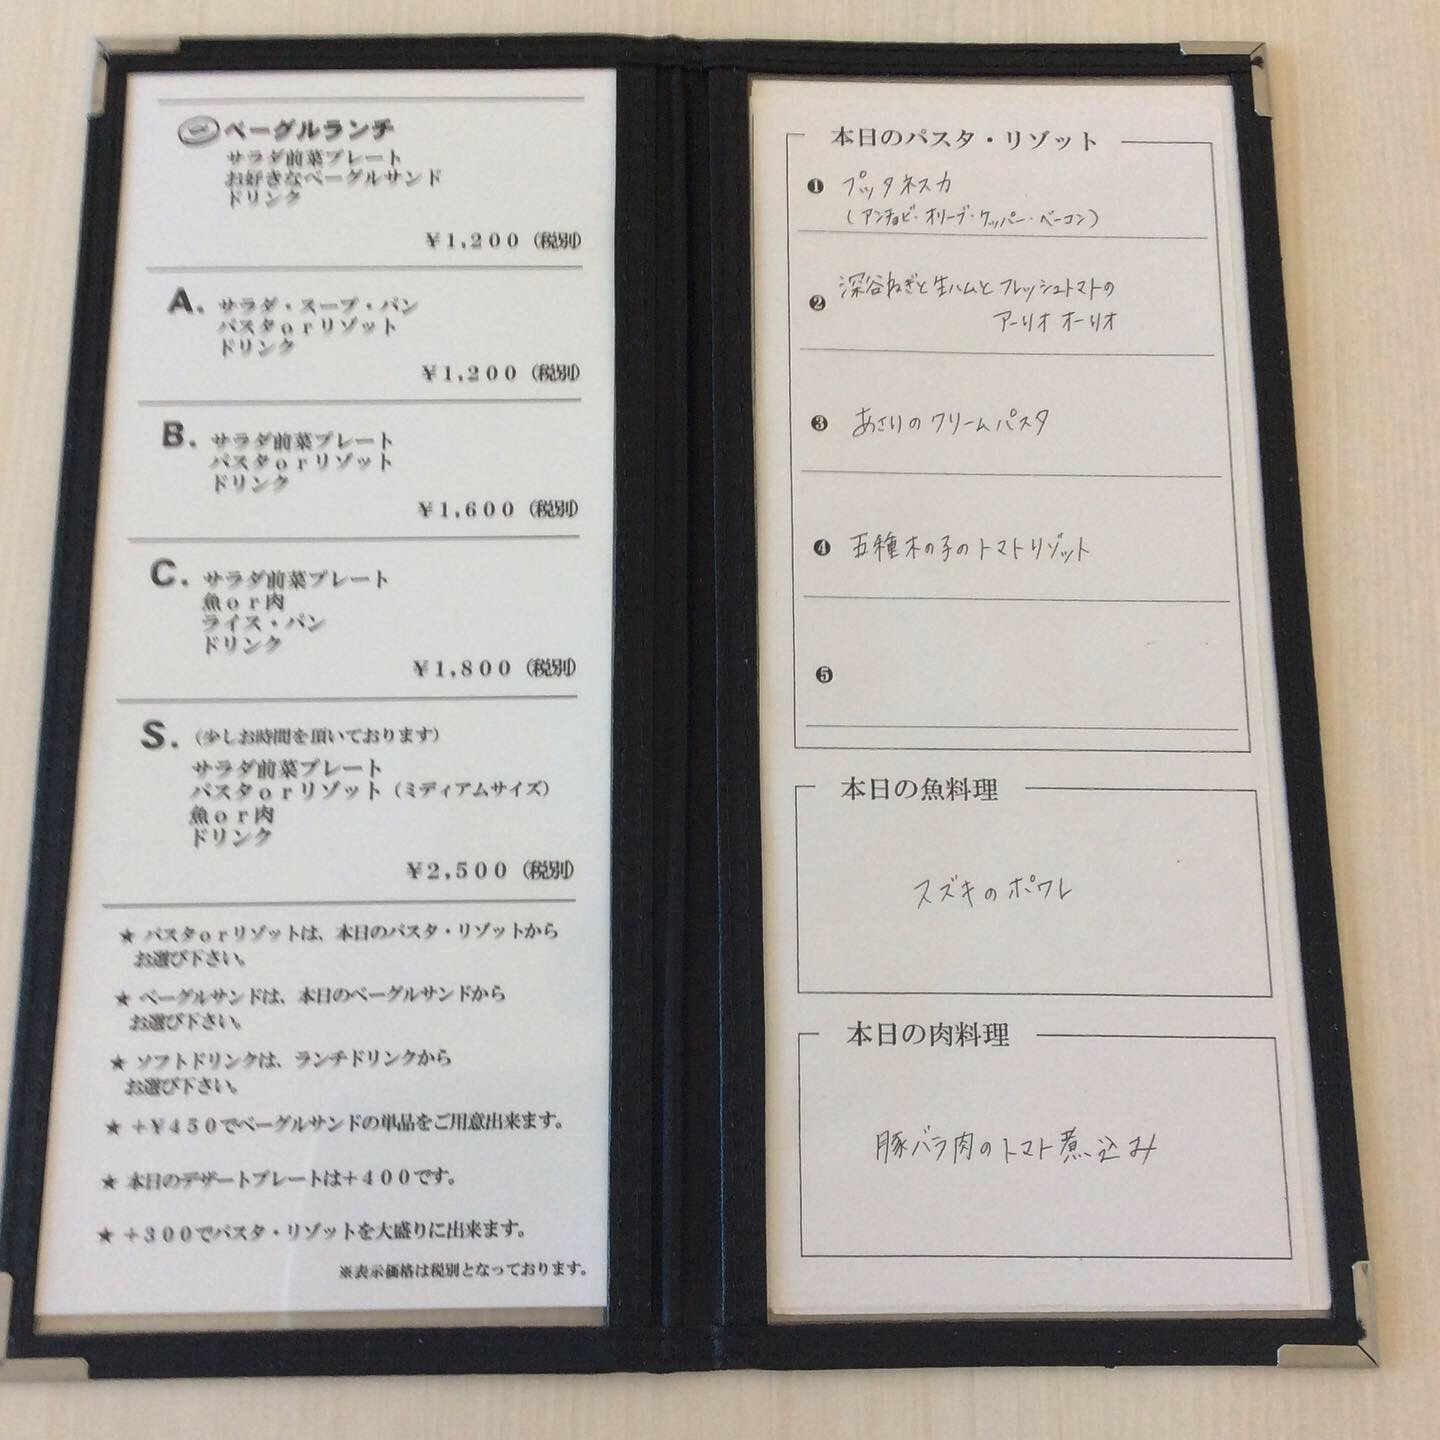 ベーグルランチ
サラダ前菜プレート
お好きなベーグルサンド
ドリンク
￥1,200（税別）
A. サラダ・スープ・パン
パスタorリゾット
ドリンク
￥1,200（税別）
B. サラダ前菜プレート
パスタorリゾット
ドリンク
￥1,600（税別）
C. サラダ前菜プレート
魚or肉
ライス・パン
ドリンク
￥1,800（税別）
S.（少しお時間を頂いております）
サラダ前菜プレート
パスタorリゾット（ミディアムサイズ）
魚or肉
ドリンク
￥2,500（税別）
★ パスタorリゾットは、本日のパスタ・リゾットから
お選び下さい。
★ ベーグルサンドは、本日のベーグルサンドから
お選び下さい。
★ ソフトドリンクは、ランチドリンクから
お選び下さい。
★ +￥450でベーグルサンドの単品をご用意出来ます。
★ 本日のデザートプレートは+400です。
★ +300でパスタ・リゾットを大盛りに出来ます。
※表示価格は税別となっております。
本日のパスタ・リゾット
❶ プッタネスカ
（アンチョビ・オリーブ・ケッパー・ベーコン）
❷ 深谷ねぎと生ハムとフレッシュトマトの
アーリオ オーリオ
❸ あさりのクリームパスタ
❹ 五種木の子のトマトリゾット
❺
本日の魚料理
スズキのポワレ
本日の肉料理
豚バラ肉のトマト煮込み